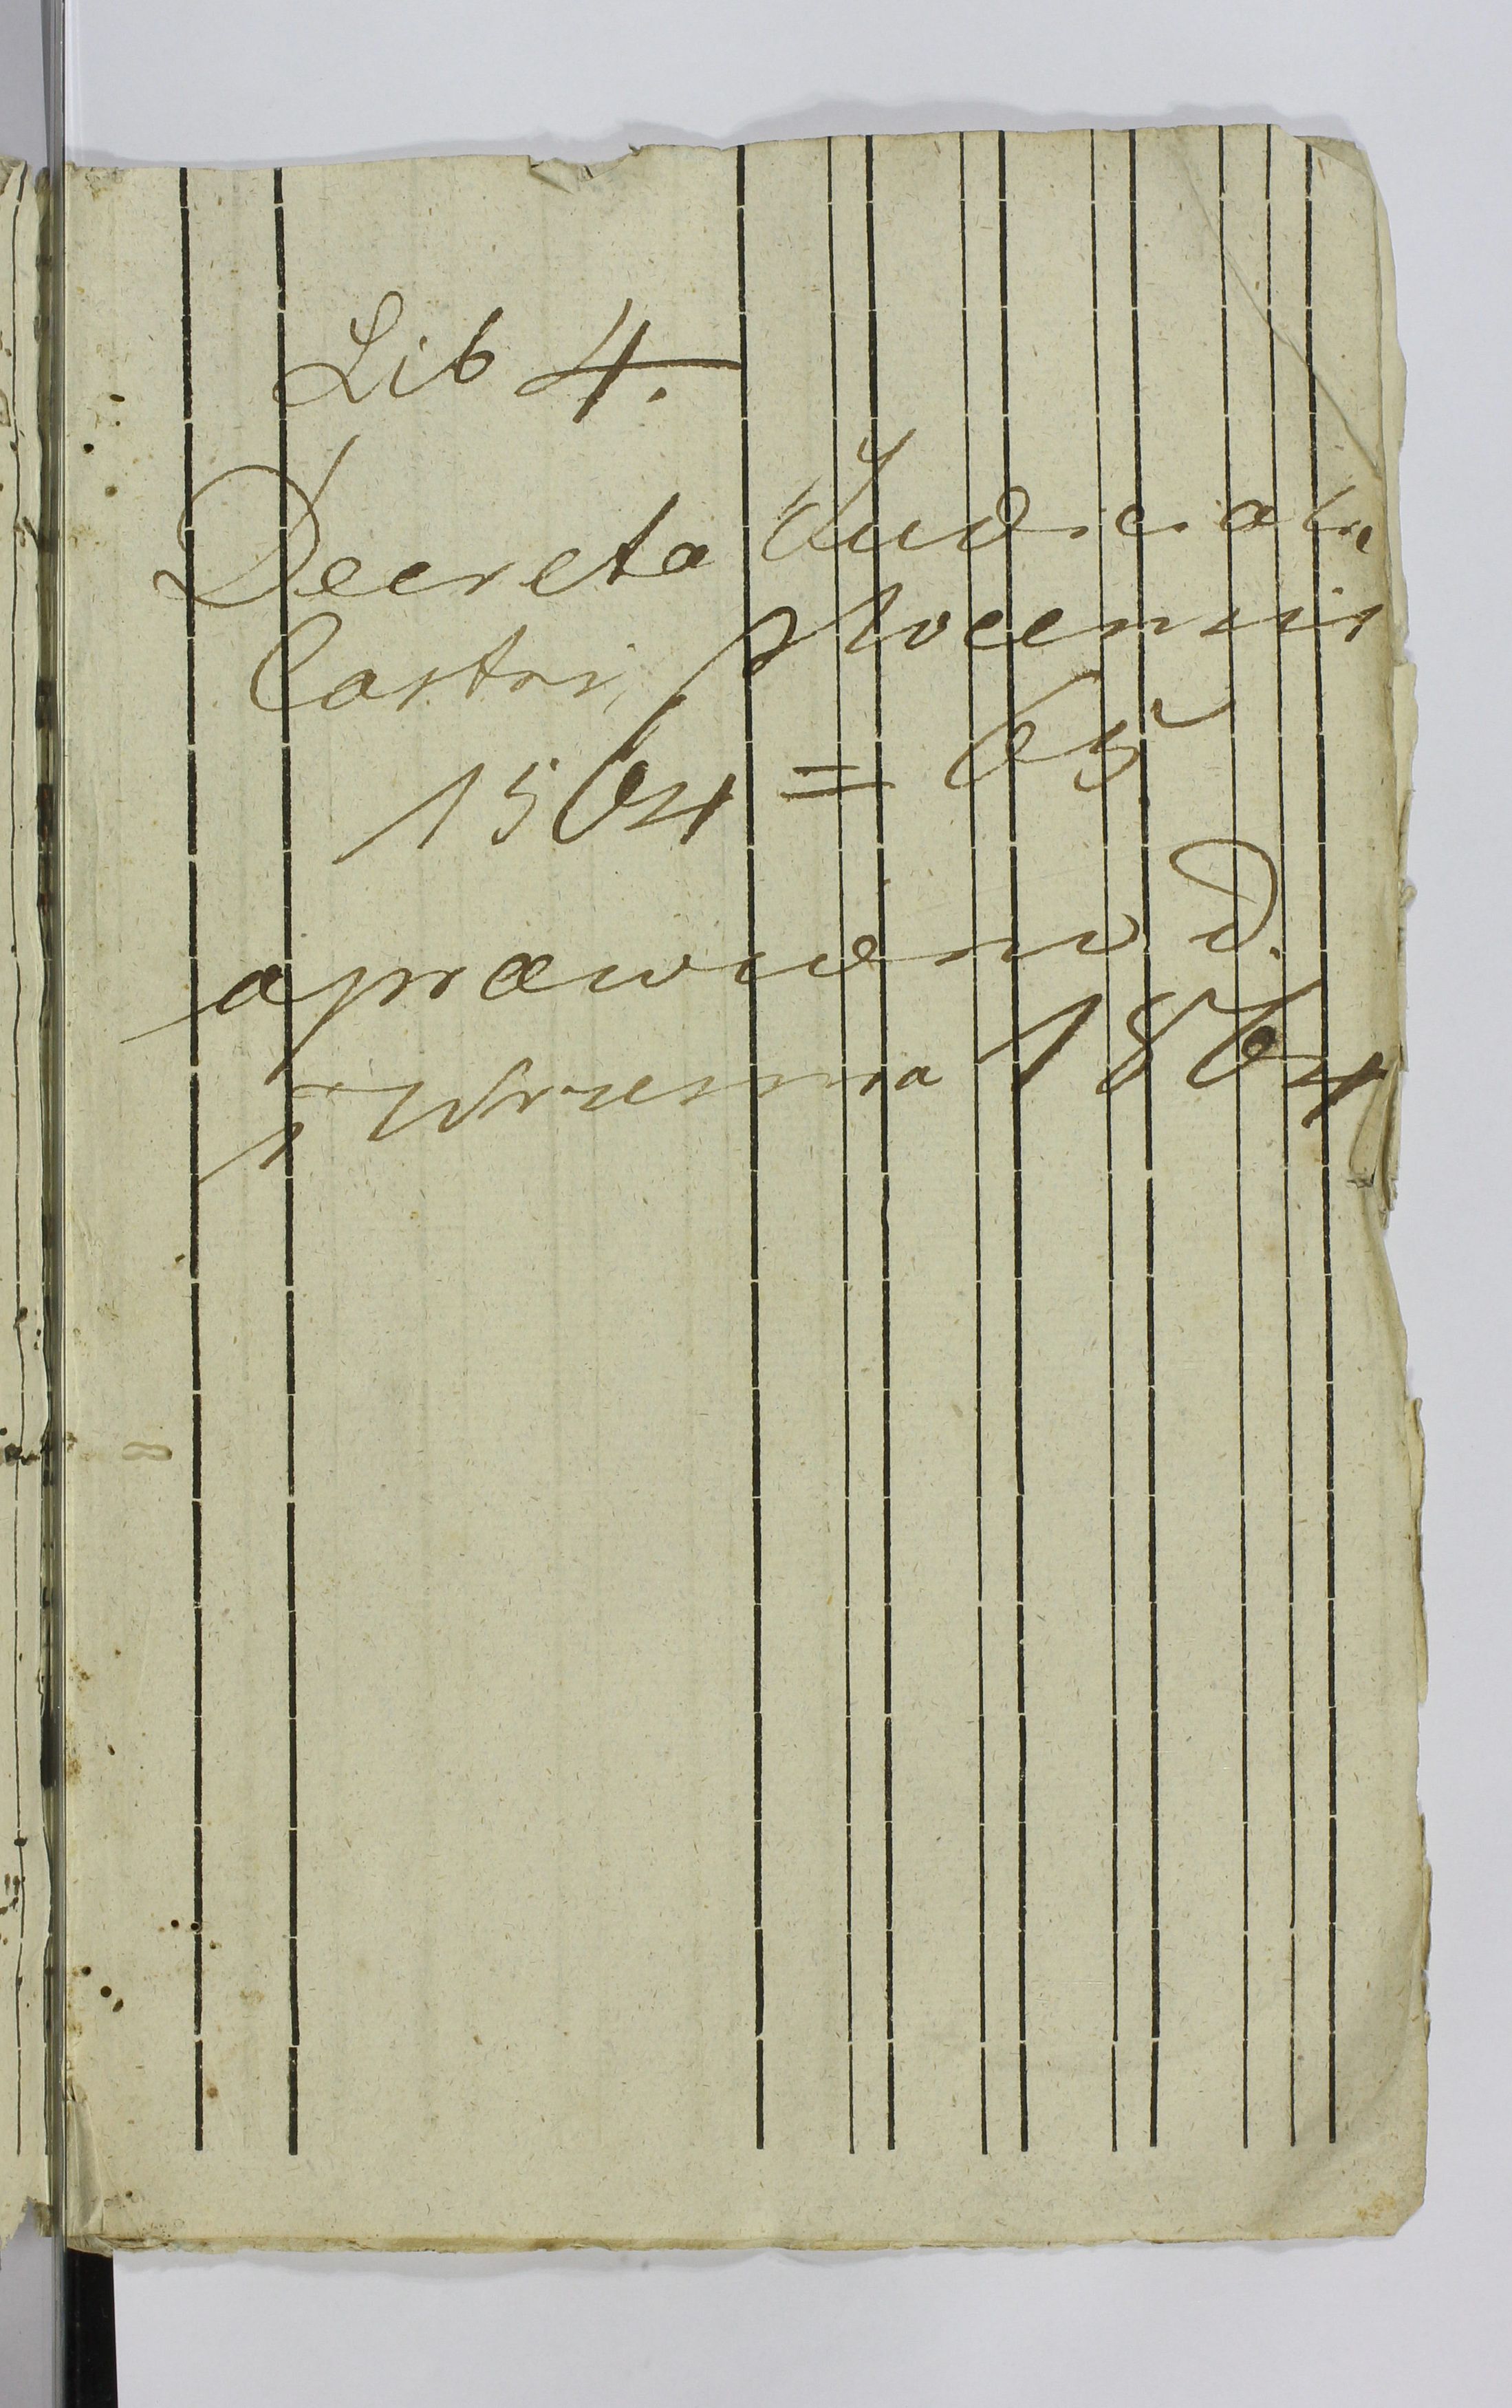 Lib 4.
Decreta Judicialia
Castri Plocensis
1564 = 65
oprawiono d.
1 Września 1864